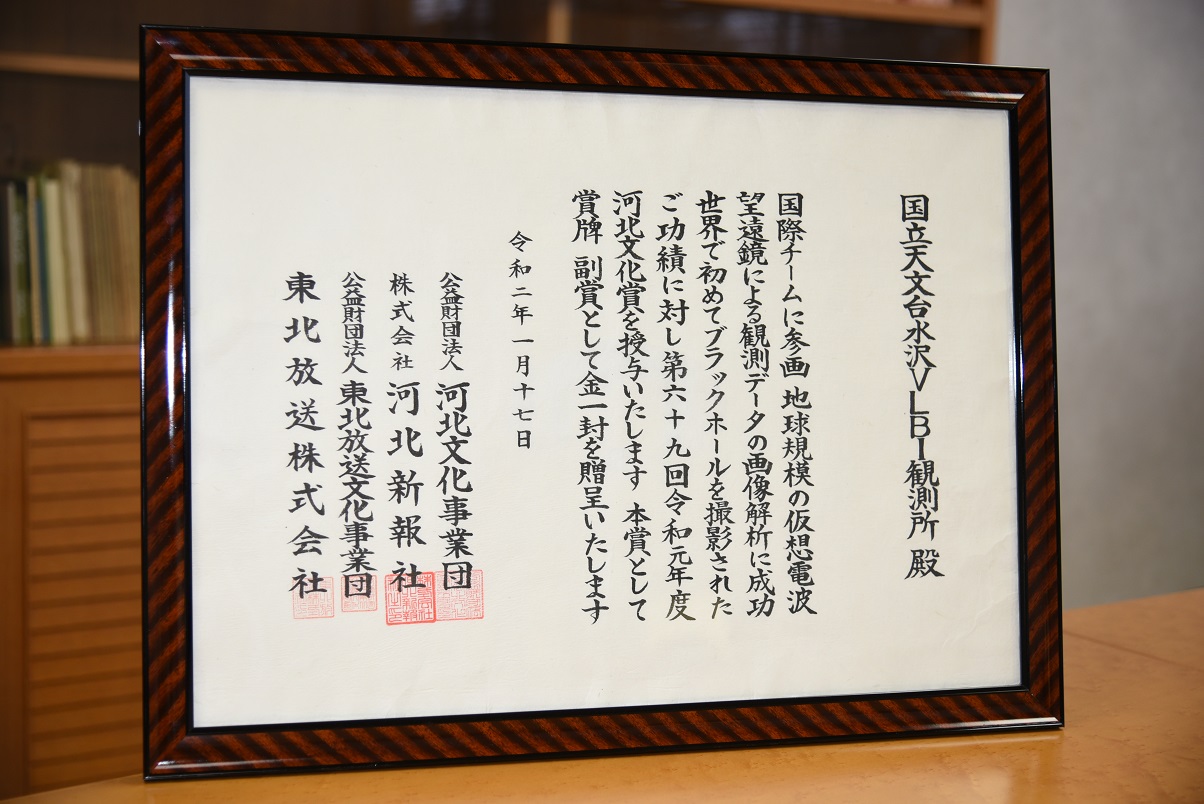 国立天文台水沢VLBI観測所 殿
国際チームに参画 地球規模の仮想電波
望遠鏡による観測データの画像解析に成功
世界で初めてブラックホールを撮影された
ご功績に対し第六十九回令和元年度
河北文化賞を授与いたします 本賞として
賞牌 副賞として金一封を贈呈いたします
令和二年一月十七日
公益財団法人 河北文化事業団
株式会社 河北新報社
公益財団法人 東北放送文化事業団
東北放送株式会社